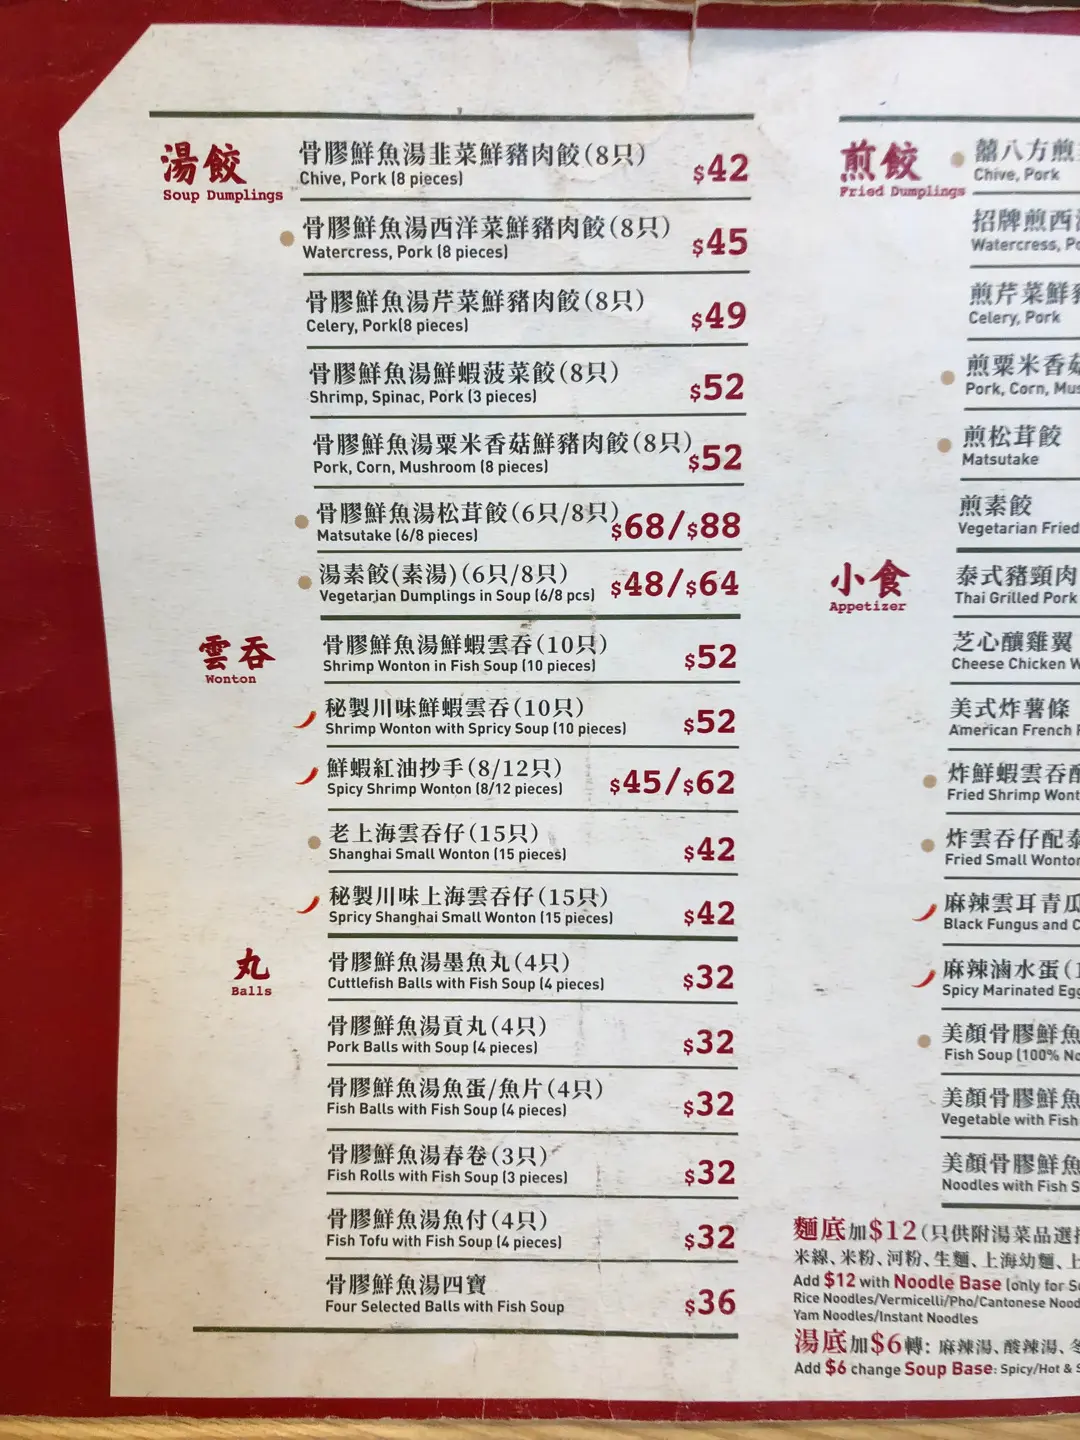 湯餃
Soup Dumplings
骨膠鮮魚湯韭菜鮮豬肉餃(8只)
Chive, Pork (8 pieces)
$42
骨膠鮮魚湯西洋菜鮮豬肉餃(8只)
Watercress, Pork (8 pieces)
$45
骨膠鮮魚湯芹菜鮮豬肉餃(8只)
Celery, Pork(8 pieces)
$49
骨膠鮮魚湯鮮蝦菠菜餃(8只)
Shrimp, Spinac, Pork (3 pieces)
$52
骨膠鮮魚湯粟米香菇鮮豬肉餃(8只)
Pork, Corn, Mushroom (8 pieces)
$52
骨膠鮮魚湯松茸餃(6只/8只)
Matsutake (6/8 pieces)
$68/$88
湯素餃(素湯)(6只/8只)
Vegetarian Dumplings in Soup (6/8 pcs)
$48/$64
雲吞
Wonton
骨膠鮮魚湯鮮蝦雲吞(10只)
Shrimp Wonton in Fish Soup (10 pieces)
$52
秘製川味鮮蝦雲吞(10只)
Shrimp Wonton with Spricy Soup (10 pieces)
$52
鮮蝦紅油抄手(8/12只)
Spicy Shrimp Wonton (8/12 pieces)
$45/$62
老上海雲吞仔(15只)
Shanghai Small Wonton (15 pieces)
$42
秘製川味上海雲吞仔(15只)
Spricy Shanghai Small Wonton (15 pieces)
$42
丸
Balls
骨膠鮮魚湯墨魚丸(4只)
Cuttlefish Balls with Fish Soup (4 pieces)
$32
骨膠鮮魚湯貢丸(4只)
Pork Balls with Soup (4 pieces)
$32
骨膠鮮魚湯魚蛋/魚片(4只)
Fish Balls with Fish Soup (4 pieces)
$32
骨膠鮮魚湯春卷(3只)
Fish Rolls with Fish Soup (3 pieces)
$32
骨膠鮮魚湯魚付(4只)
Fish Tofu with Fish Soup (4 pieces)
$32
骨膠鮮魚湯四寶
Four Selected Balls with Fish Soup
$36
煎餃
Fried Dumplings
囍八方煎
Chive, Pork
招牌煎西
Watercress, Po
煎芹菜鮮
Celery, Pork
煎粟米香菇
Pork, Corn, Mus
煎松茸餃
Matsutake
煎素餃
Vegetarian Fried
小食
Appetizer
泰式豬頸肉
Thai Grilled Pork
芝心釀雞翼
Cheese Chicken W
美式炸薯條
American French
炸鮮蝦雲吞配
Fried Shrimp Wont
炸雲吞仔配泰
Fried Small Wonton
麻辣雲耳青瓜
Black Fungus and C
麻辣滷水蛋(1
Spicy Marinated Egg
美顏骨膠鮮魚
Fish Soup (100% No
美顏骨膠鮮魚
Vegetable with Fish
美顏骨膠鮮魚
Noodles with Fish S
麵底加$12(只供附湯菜品選
米線、米粉、河粉、生麵、上海幼麵、上
Add $12 with Noodle Base (only for S
Rice Noodles/Vermicelli/Pho/Cantonese Nood
Yam Noodles/Instant Noodles
湯底加$6轉: 麻辣湯、酸辣湯、冬
Add $6 change Soup Base: Spicy/Hot & S